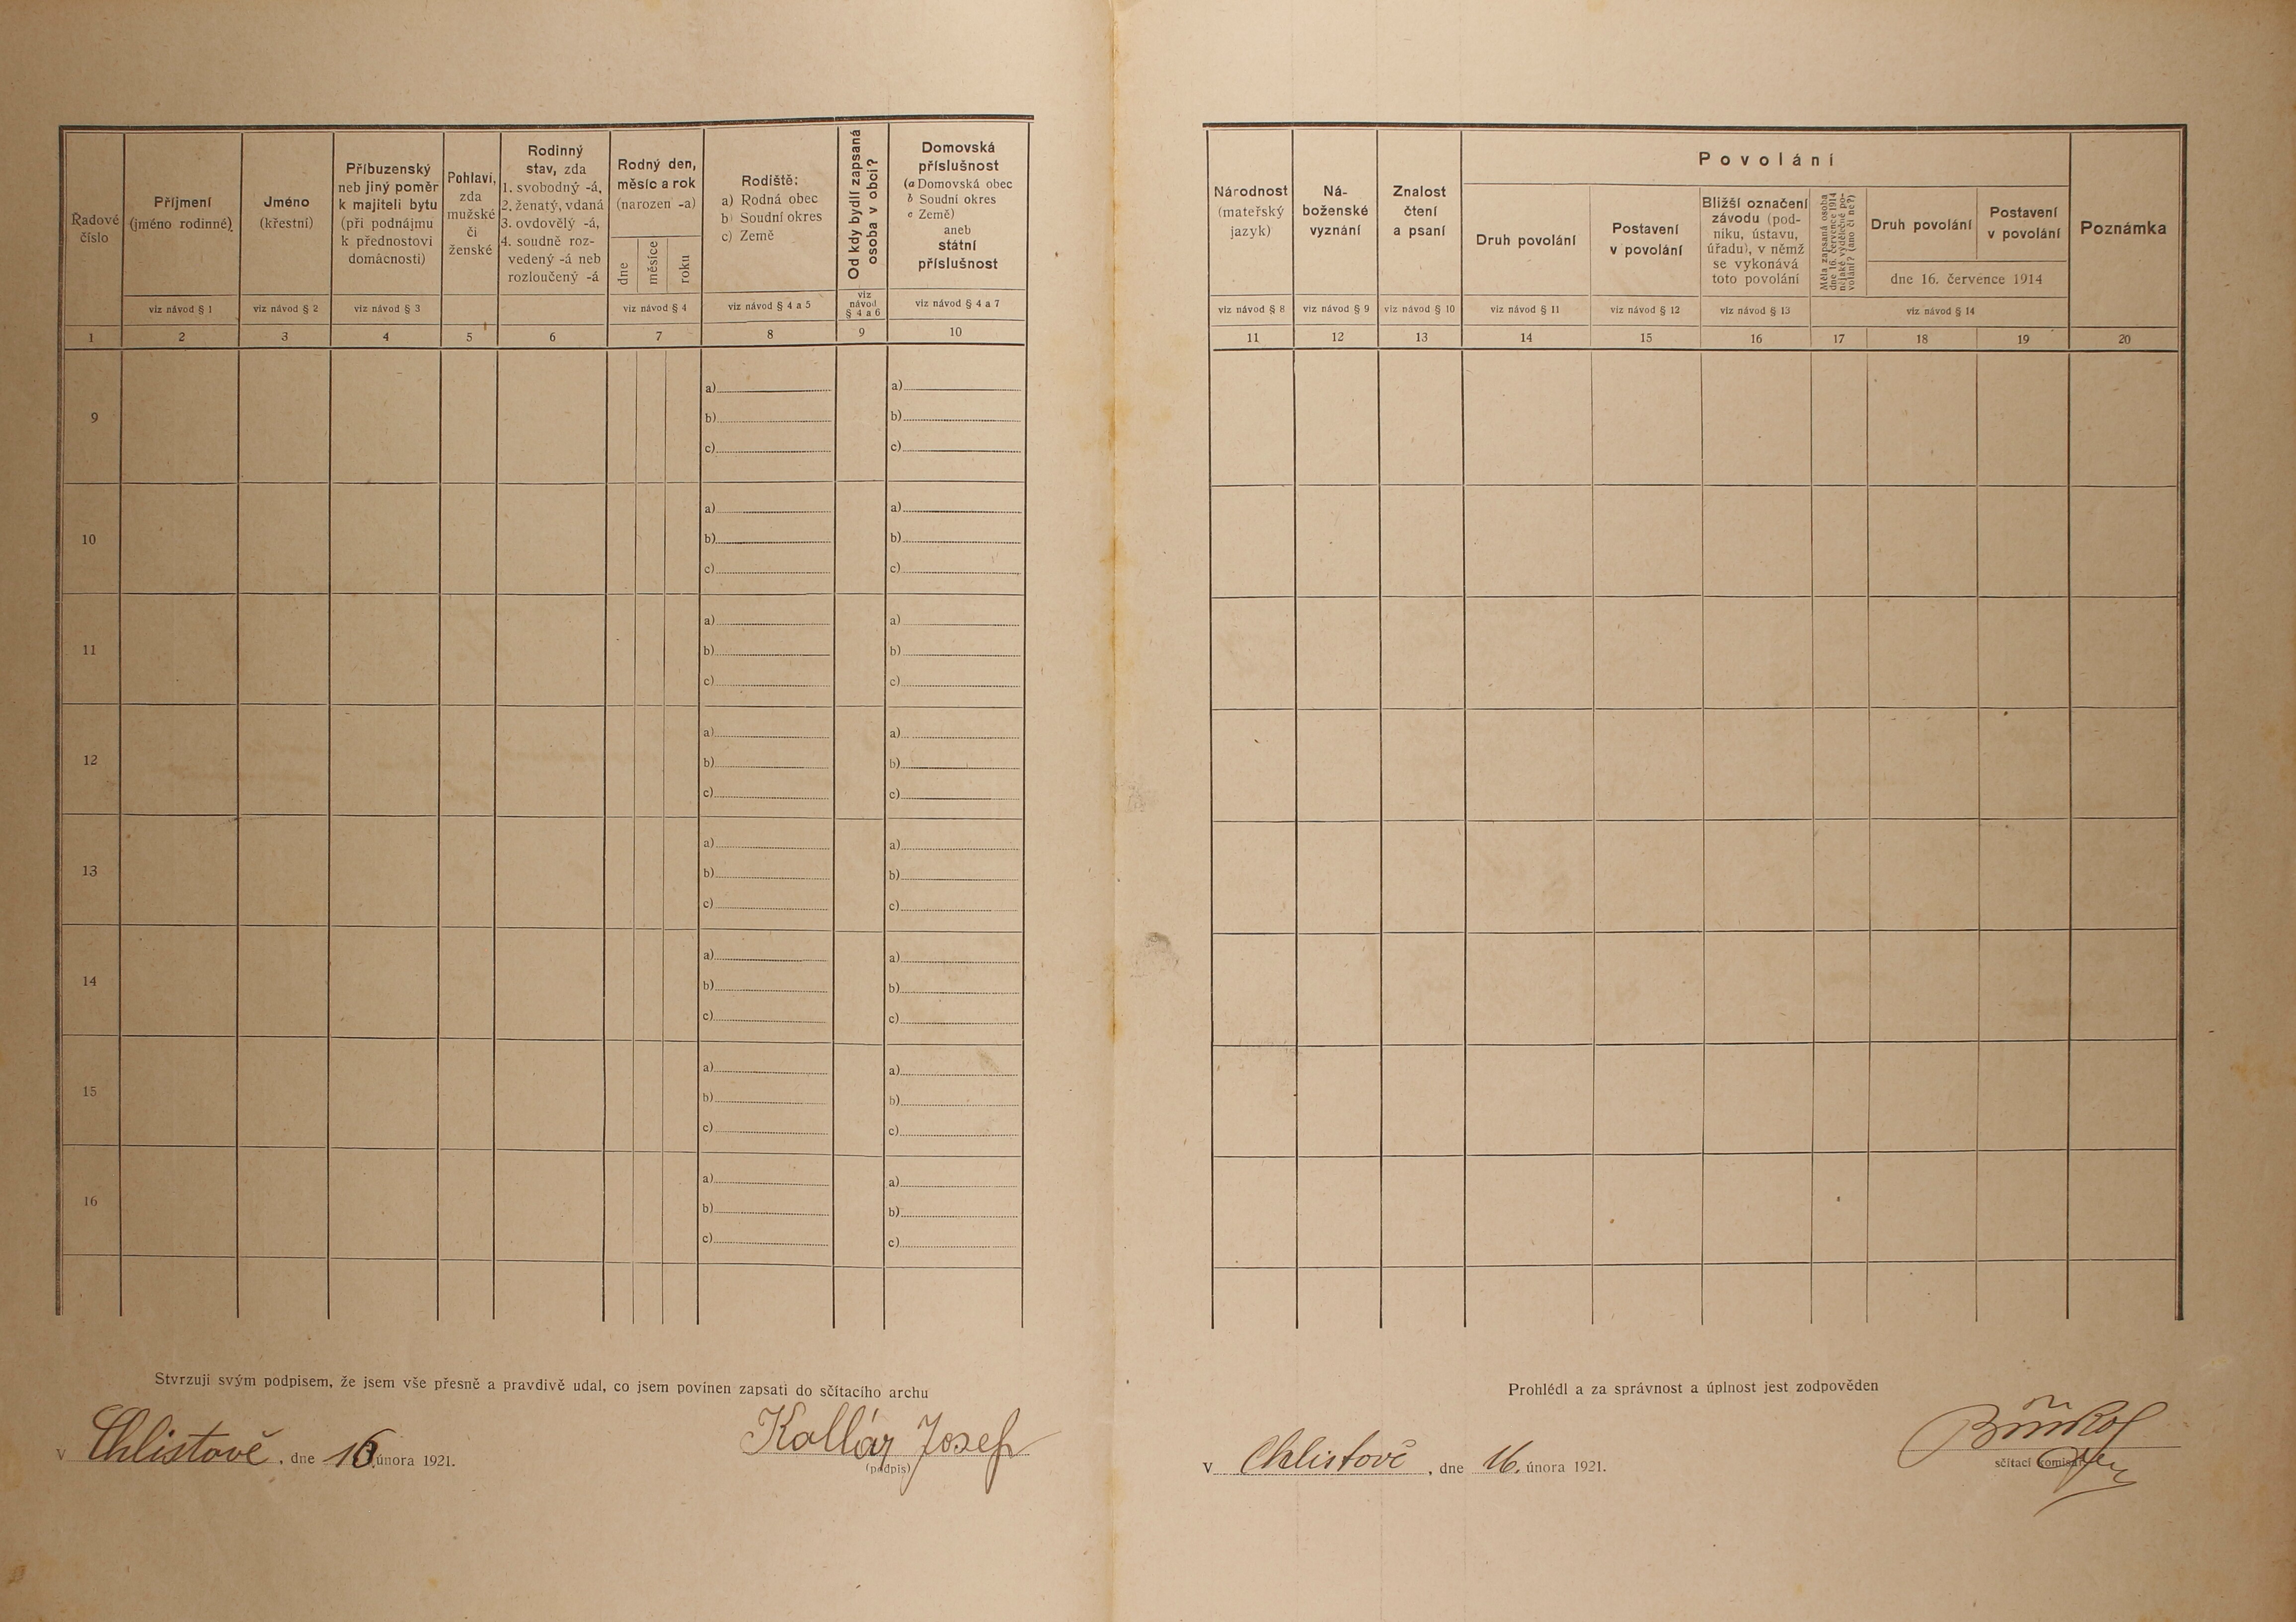 Řadové
číslo
Příjmení
(jméno rodinné)
Jméno
(křestní)
Příbuzenský
neb jiný poměr
k majiteli bytu
(při podnájmu
k přednostovi
domácnosti)
Pohlaví,
zda
mužské
či
ženské
Rodinný
stav, zda
1. svobodný -á,
2. ženatý, vdaná
3. ovdovělý -á,
4. soudně roz-
vedený -á neb
rozloučený -á
Rodný den,
měsíc a rok
(narozen -a)
dne
měsíce
roku
Rodiště:
a) Rodná obec
b) Soudní okres
c) Země
Od kdy bydlí zapsaná
osoba v obci?
Domovská
příslušnost
(a Domovská obec
b Soudní okres
c Země)
aneb
státní
příslušnost
viz návod § 1
viz návod § 2
viz návod § 3
viz návod § 4
viz návod § 4 a 5
viz
návod
§ 4 a 6
viz návod § 4 a 7
1 2 3 4 5 6 7 8 9 10
9 a) a)
b) b)
c) c)
10 a) a)
b) b)
c) c)
11 a) a)
b) b)
c) c)
12 a) a)
b) b)
c) c)
13 a) a)
b) b)
c) c)
14 a) a)
b) b)
c) c)
15 a) a)
b) b)
c) c)
16 a) a)
b) b)
c) c)
Stvrzuji svým podpisem, že jsem vše přesně a pravdivě udal, co jsem povinen zapsati do sčítacího archu
V Chlistově, dne 16. února 1921.
Kollár Josef
(podpis)
Národnost
(mateřský
jazyk)
Ná-
boženské
vyznání
Znalost
čtení
a psaní
Povolání
Druh povolání
Postavení
v povolání
Bližší označení
závodu (pod-
niku, ústavu,
úřadu), v němž
se vykonává
toto povolání
Měla zapsaná osoba
dne 16. července 1914
nějaké výdělečné po-
volání? (ano či ne?)
Druh povolání
Postavení
v povolání
dne 16. července 1914
Poznámka
viz návod § 8
viz návod § 9
viz návod § 10
viz návod § 11
viz návod § 12
viz návod § 13
viz návod § 14
11 12 13 14 15 16 17 18 19 20
Prohlédl a za správnost a úplnost jest zodpověden
V Chlistově, dne 16. února 1921.
sčítací komisař